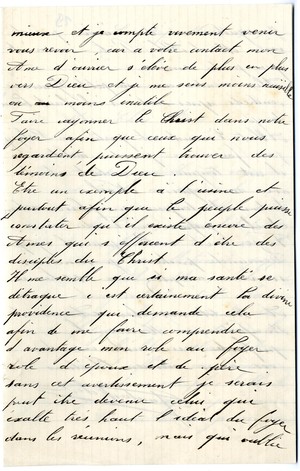 mieux et je compte vivement venir
vous revoir, car à votre contact mon
Ame d'ouvrier s'élève de plus en plus
vers Dieu et je me sens moins
ou moins inutile
Faire rayonner le Christ dans notre
foyer afin que ceux qui nous
regardent puissent trouver des
témoins de Dieu.
Etre un exemple à l'usine et
partout afin que le peuple puisse
constater qu'il existe encore des
Ames qui s'efforcent d'être des
disciples du Christ.
Il me semble que si ma santé se
détraque c'est certainement la divine
providence qui demande cela
afin de me faire comprendre
d'avantage mon role au foyer
role d'époux et de père
sans cet avertissement je serais
peut être devenu celui qui
exalte très haut l'idéal du foyer
dans les réunions, mais qui oublie